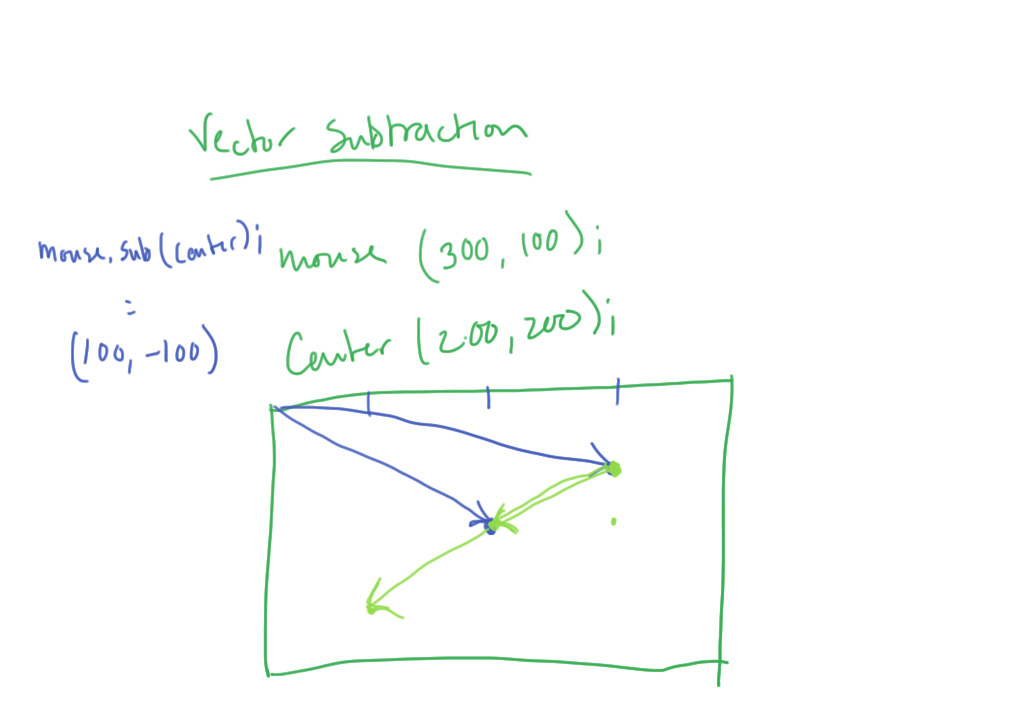 Vector Subtraction
mouse.sub(center);
=
(100, -100)
mouse (300, 100);
Center (200, 200);